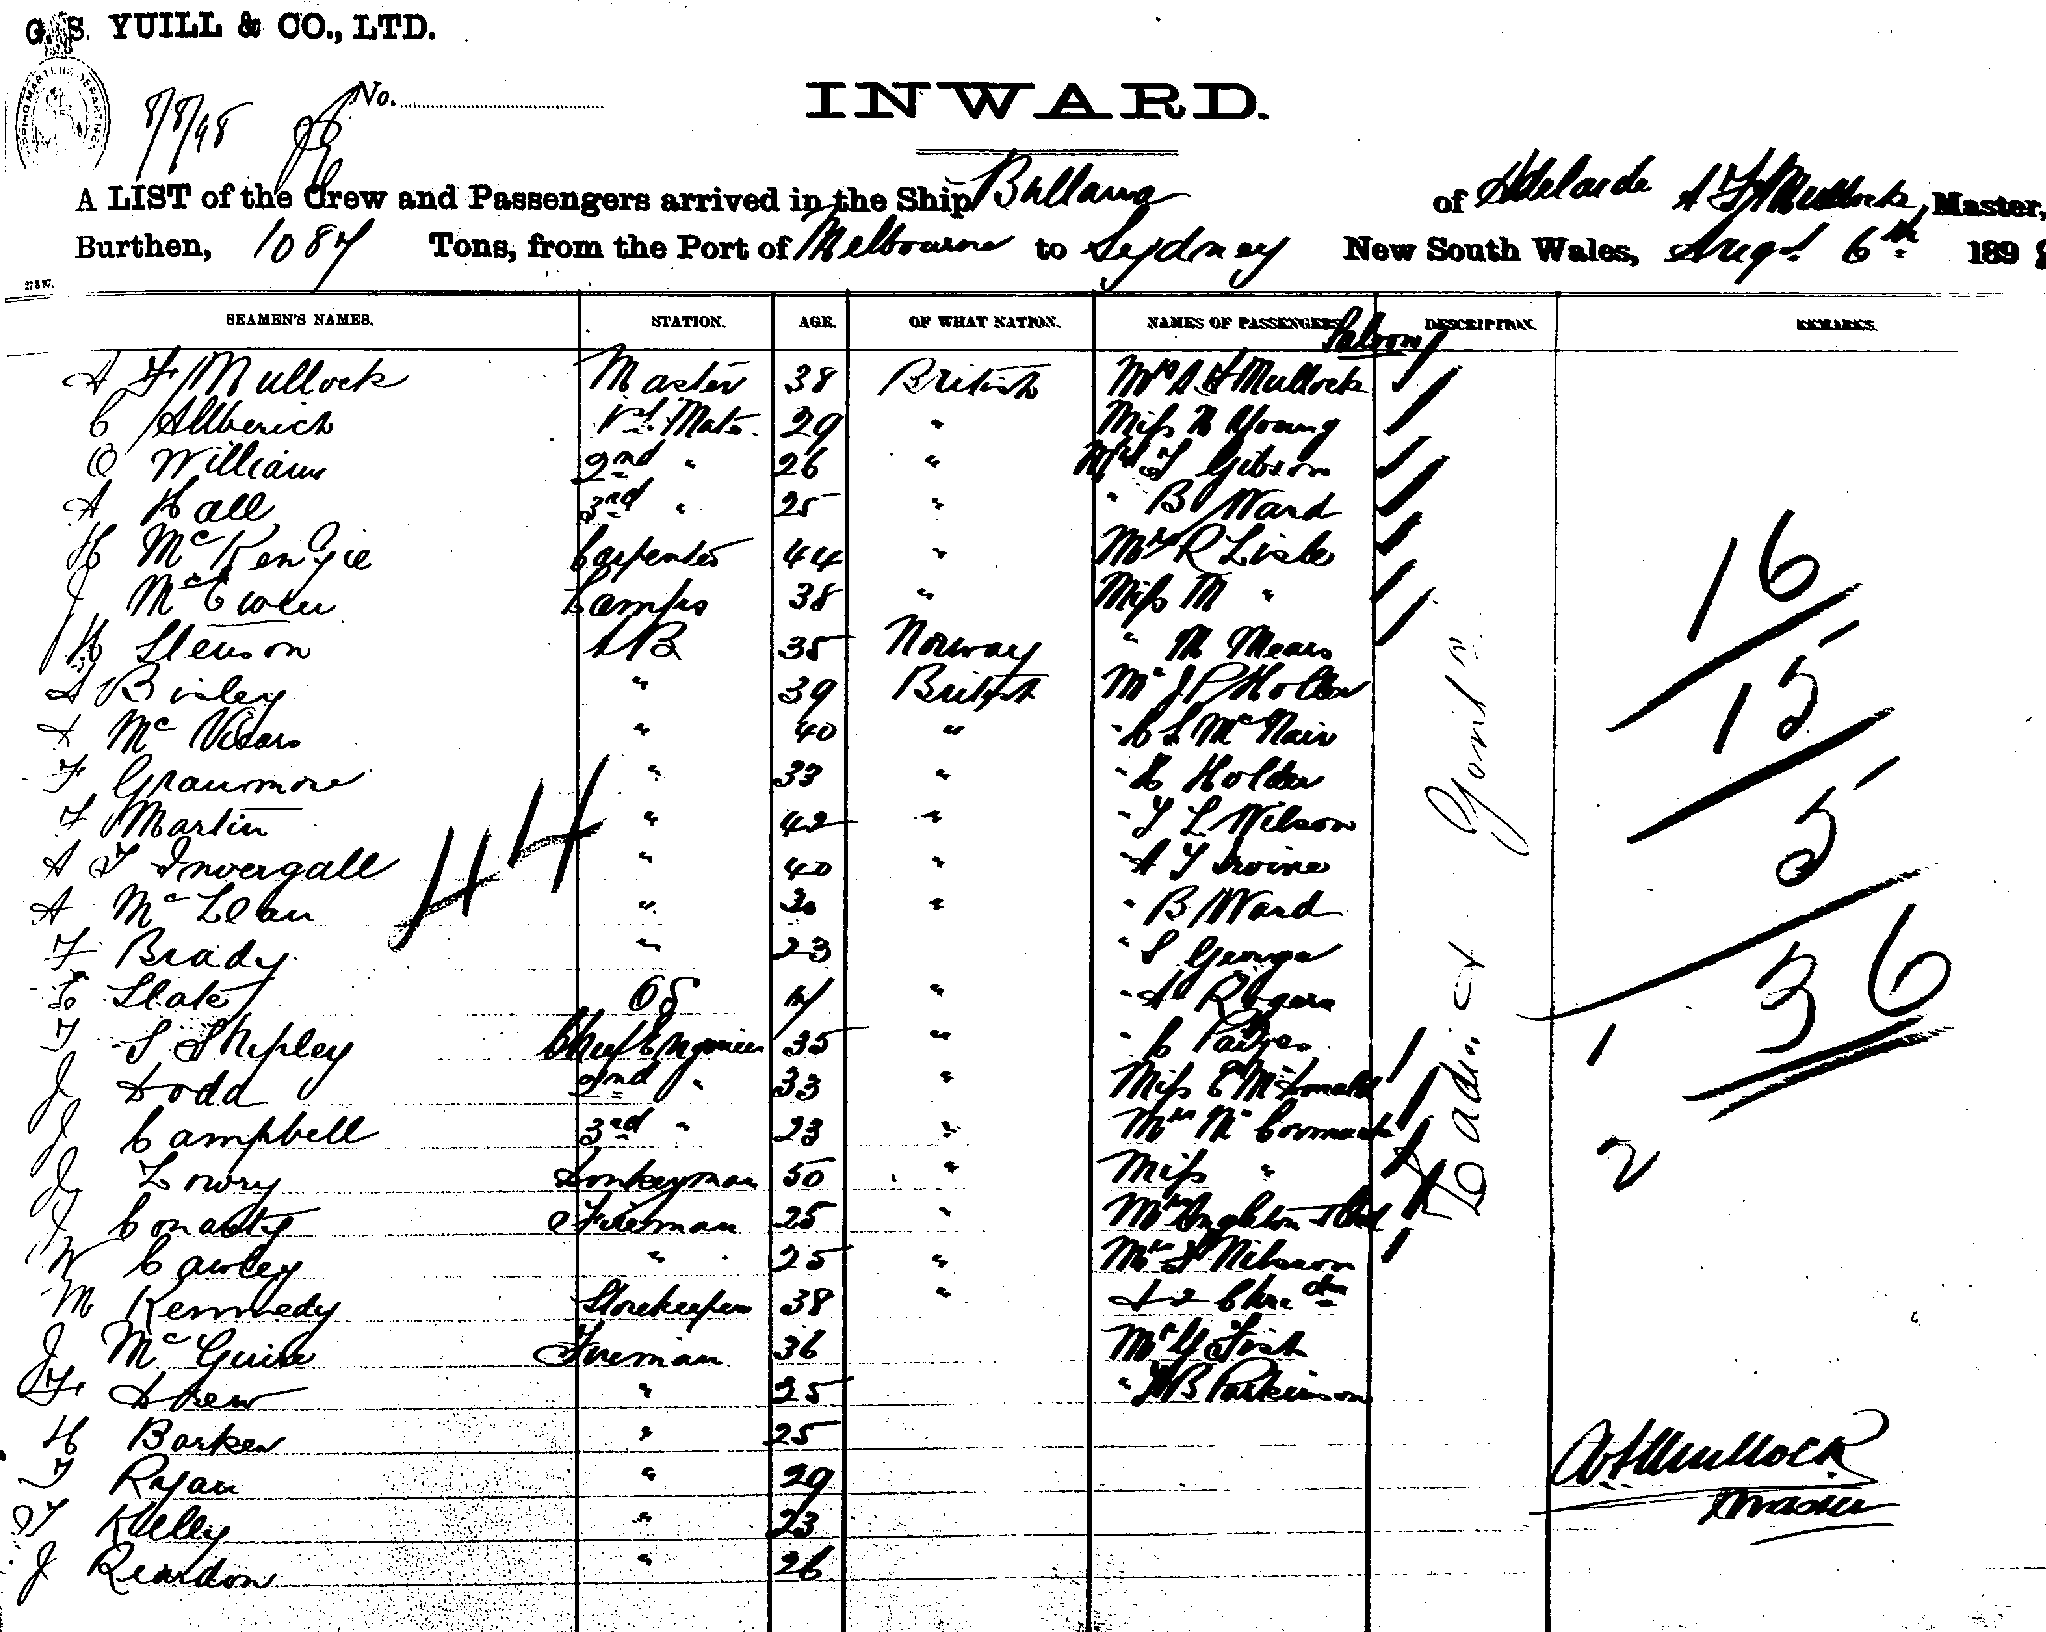 G. S. YUILL & CO., LTD.
8/8/98 No.
INWARD.
A LIST of the Crew and Passengers arrived in the Ship Bullarra of Adelaide A F Mullock, Master,
Burthen, 1087 Tons, from the Port of Melbourne to Sydney New South Wales, Augst 6th 1898
SEAMEN'S NAMES. STATION. AGE. OF WHAT NATION. NAMES OF PASSENGERS DESCRIPTION. REMARKS.
Saloon
A F Mullock Master 38 British Mrs A F Mullock
C Allberich 1st Mate 29 " Miss N Young
O Williams 2nd " 26 " Mrs T Gibson
A Hall 3rd " 25 " " B Ward
H McKenzie Carpenter 44 " Mrs R Lisle
J McEwen Lamps 38 " Miss M "
H Stenson AB 35 Norway " M Mears
A Bisley " 39 British Mr J P Holden
A McVicars " 40 " " C S McNair
F Graumore " 33 " " H Holden
F Martin " 42 " " T L Wilson
A T Invergall " 40 " " A T Irvine
A McLean " 30 " " B Ward
F Brady " 23 " S George
E Slate OS 17 " " A Rogers
T S Shepley Chief Engineer 35 " " C
J Dodd 2nd " 33 " Miss E McDonald
J Campbell 3rd " 23 " Mrs McCormack
J Lowry Donkeyman 50 " Miss "
J Conasty Fireman 25 " Mrs Ingleton & Chd
W Cawley " 25 " Mrs S Nilsson
M Kennedy Storekeeper 38 " & 2 Chn
J McGuire Fireman 36 Mr G Fish
F Drew " 25 " B Parkinson
H Barker " 25
T Ryan " 29
T Kelly " 23
J Reardon " 26
44
Ladies
16
15
5
36
1
2
A F Mullock
Master